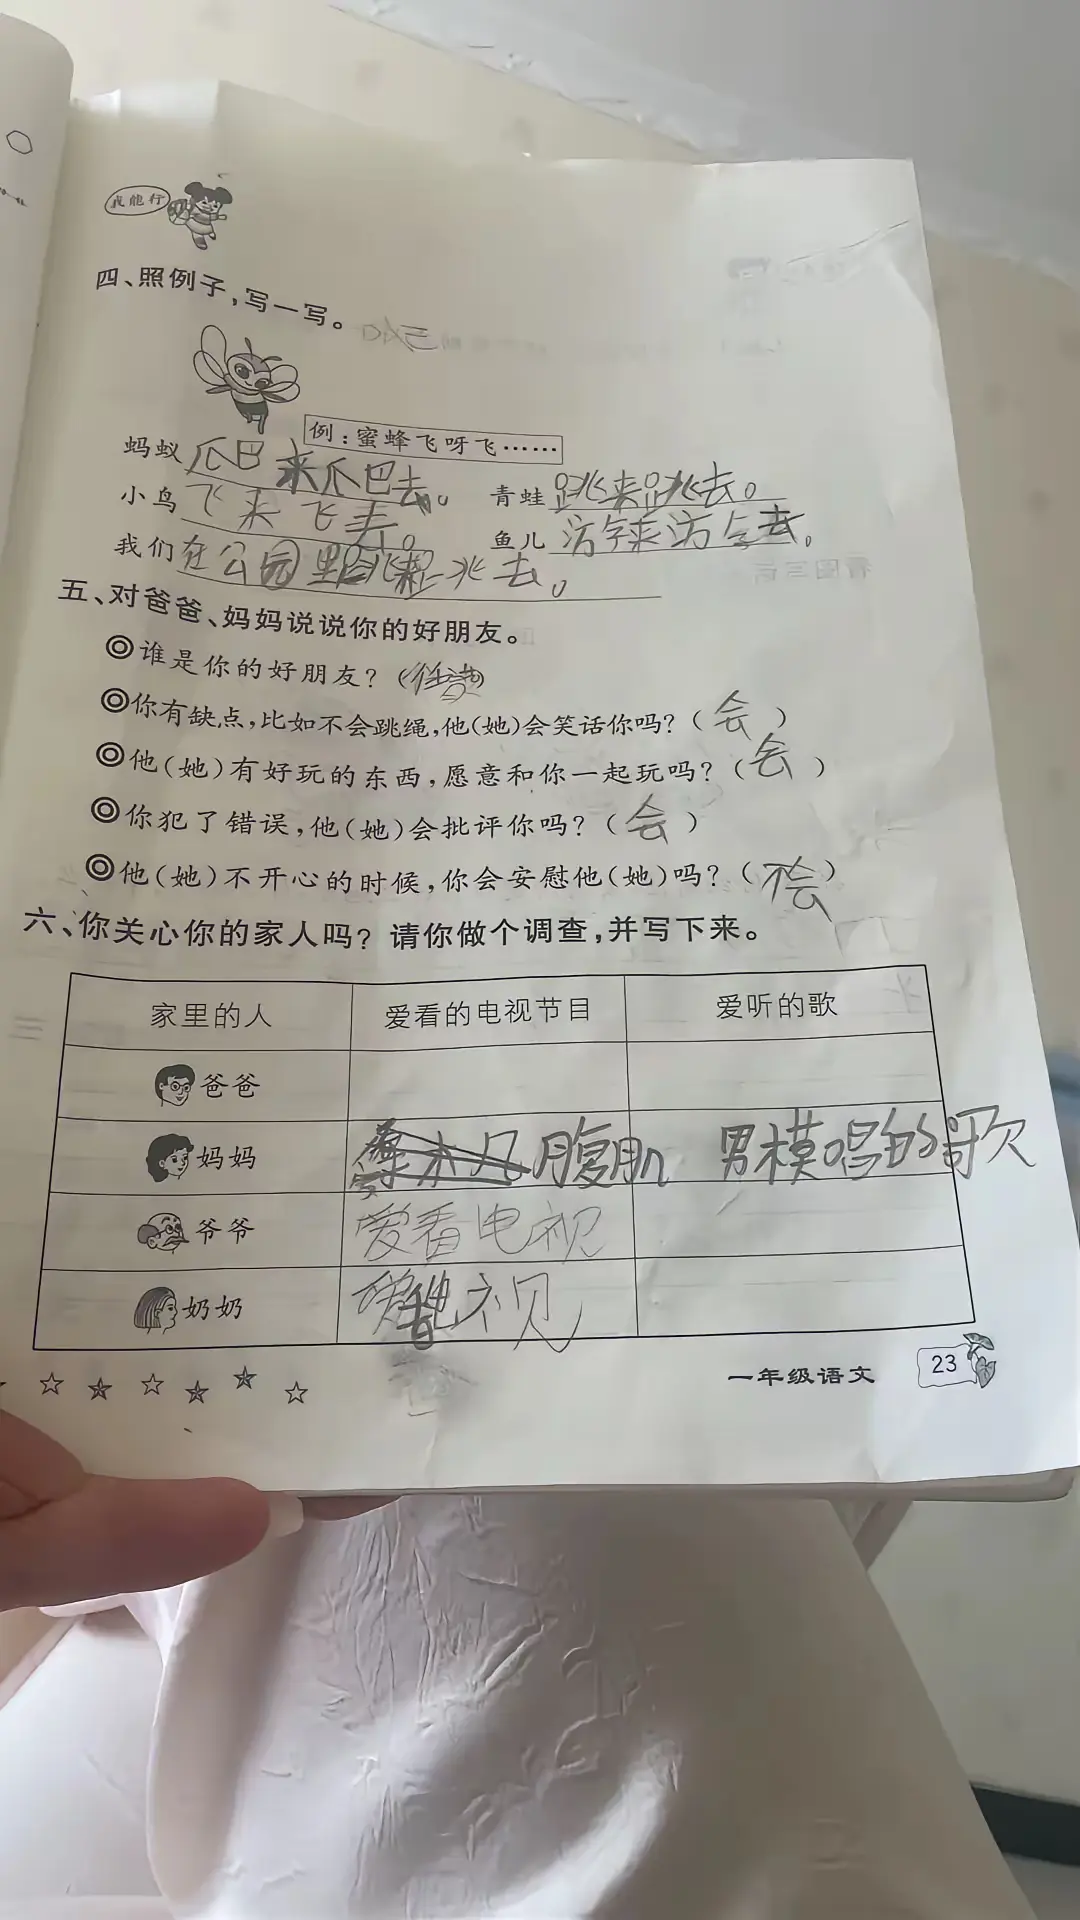 我能行
四、照例子，写一写。
例：蜜蜂飞呀飞……
蚂蚁爬来爬去。
小鸟飞来飞去。 青蛙跳来跳去。
我们在公园里跳来跳去。 鱼儿游来游去。
五、对爸爸、妈妈说说你的好朋友。
◎谁是你的好朋友？（）
◎你有缺点，比如不会跳绳，他（她）会笑话你吗？（会）
◎他（她）有好玩的东西，愿意和你一起玩吗？（会）
◎你犯了错误，他（她）会批评你吗？（会）
◎他（她）不开心的时候，你会安慰他（她）吗？（不会）
六、你关心你的家人吗？请你做个调查，并写下来。
家里的人 爱看的电视节目 爱听的歌
爸爸
妈妈 腹肌 男模唱的歌
爷爷 爱看电视
奶奶 爱看电视
一年级语文 23